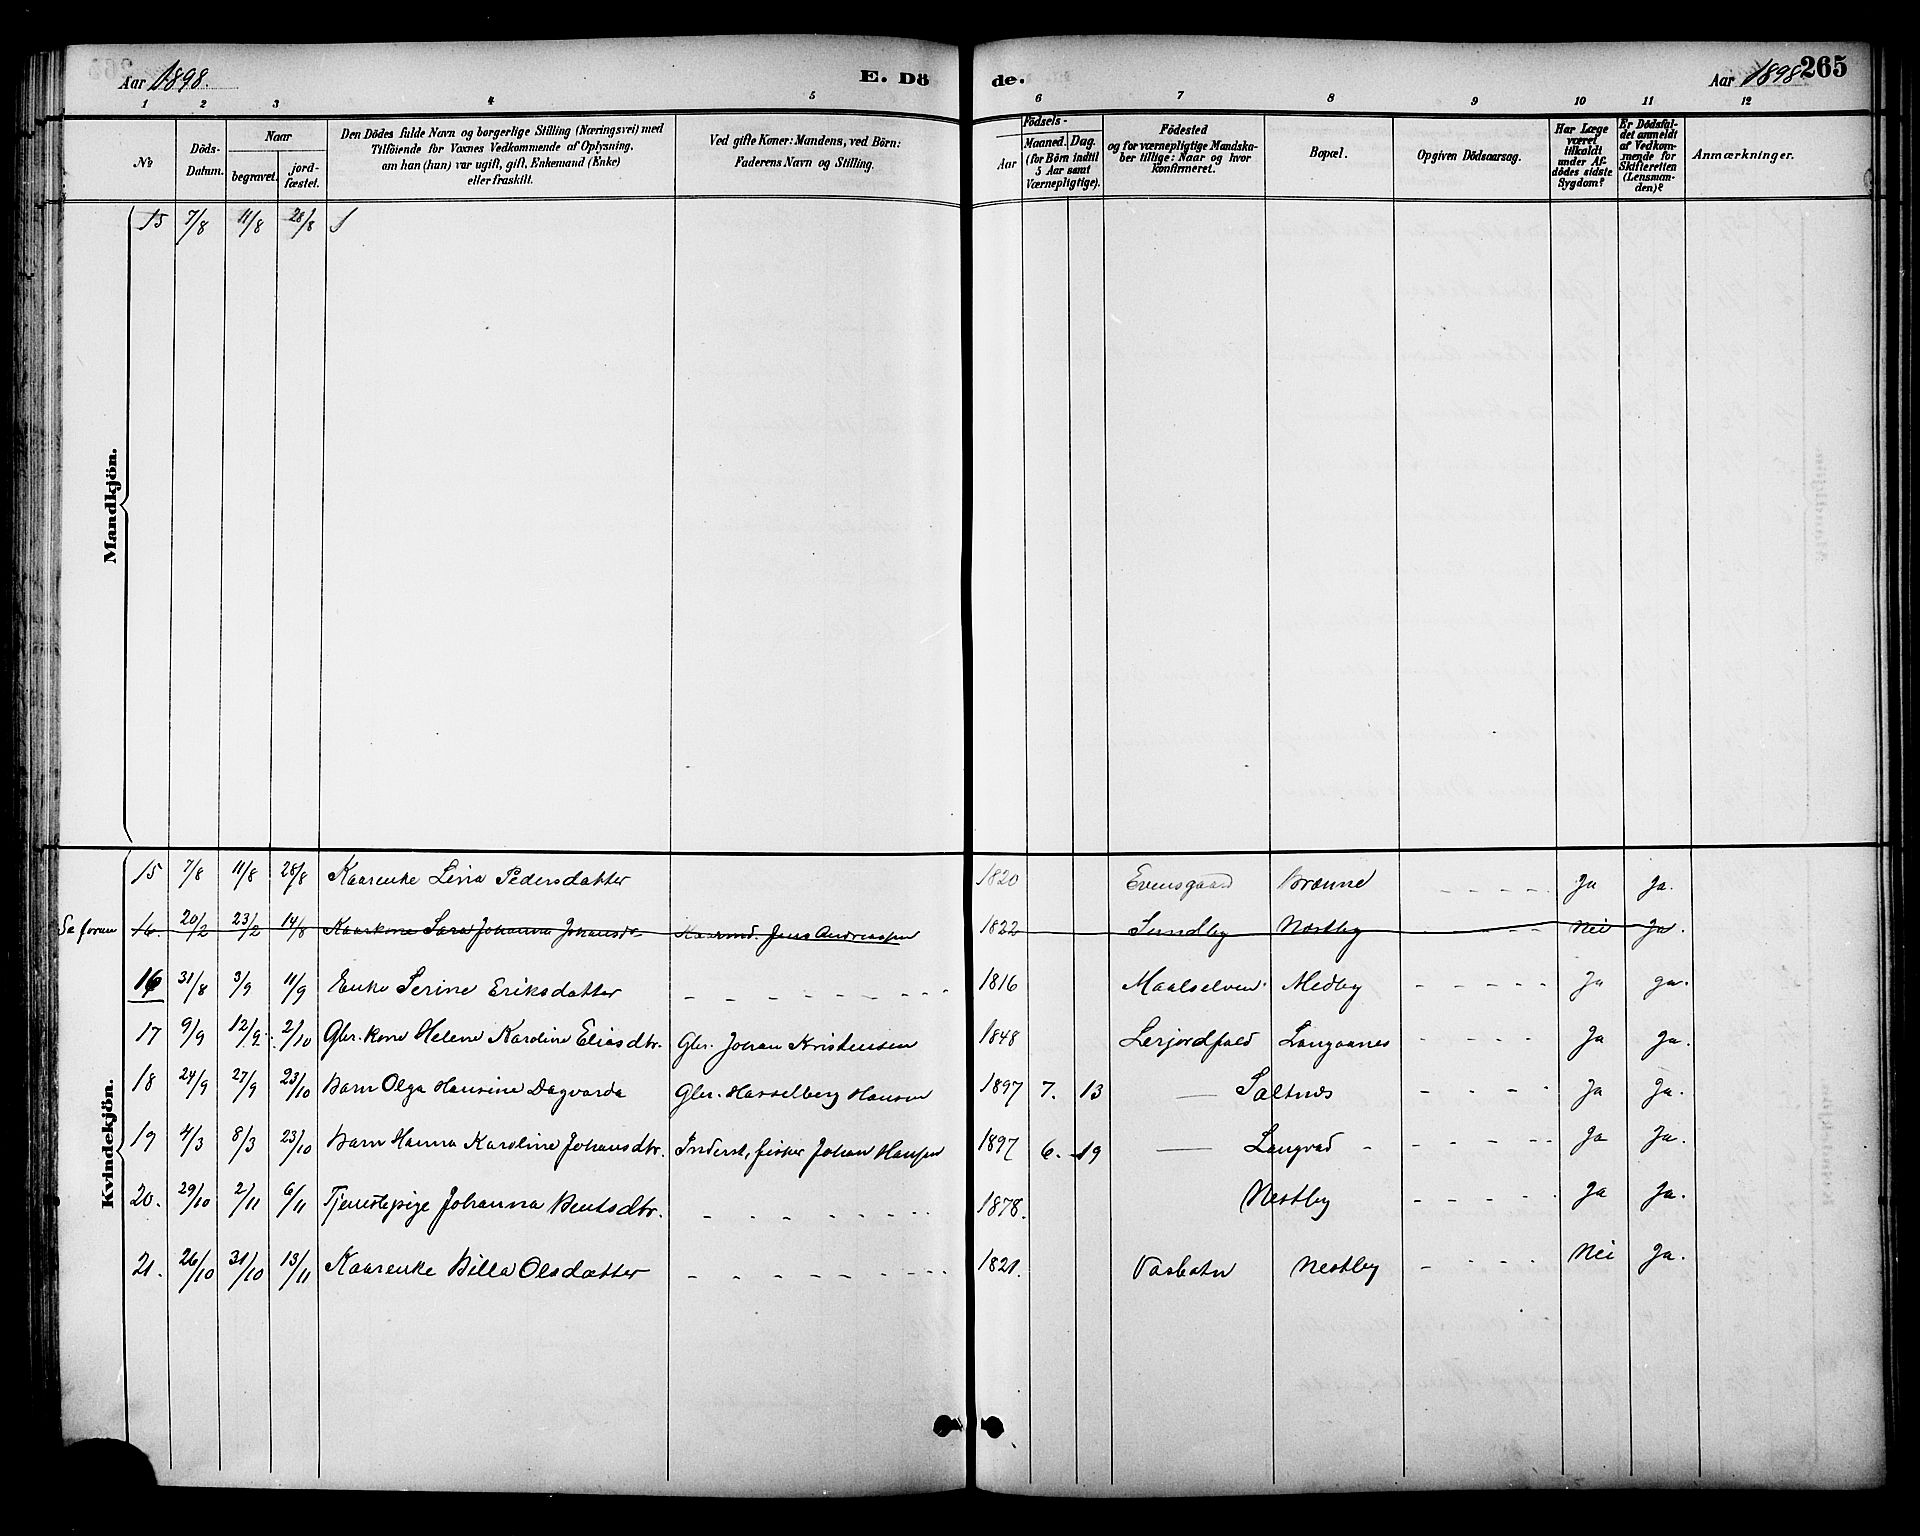 Aar 1898. E. Dö de. Aar 1898 265
1 2 3 4 5 6 7 8 9 10 11 12
No
Döds-Datum.
Naar
begravet.
jord-fæstet.
Den Dödes fulde Navn og borgerlige Stilling (Næringsvei) med
Tilföiende for Voxnes Vedkommende af Oplysning,
om han (hun) var ugift, gift, Enkemand (Enke)
eller fraskilt.
Ved gifte Koner: Mandens, ved Börn:
Faderens Navn og Stilling.
Födsels-
Aar
Maaned. Dag.
(for Börn indtil
5 Aar samt
Værnepligtige).
Födested
og for værnepligtige Mandska-
ber tillige: Naar og hvor
konfirmeret.
Bopæl.
Opgiven Dödsaarsag.
Har Læge
været
tilkaldt
under Af-
dödes sidste
Sygdom?
Er Dödsfal-
det anmeldt
af Vedkom-
mende for
Skifteretten
(Lensman-
den)?
Anmærkninger.
Mandkjön.
15 7/8 11/8 28/8
Kvindekjön.
15 7/8 11/8 28/8 Kaarenke Lina Pedersdatter 1820 Evensgaard Brænne - - - - - Ja Ja.
Se foran 16. 20/2 23/2 14/8 Kaarkone Sara Johanna Johansd. Kaarmd. Jens Andreassen 1822 Sundby Nestby - - - Nei Ja.
16 31/8 3/9 11/9 Enke Serine Eriksdatter - - - - - - - - 1816 Maalselven. Medby - - - - - Ja ja.
17 9/9 12/9. 2/10 Gbr. kone Helene Karoline Eliasdtr. Gbr. Johan Kristensen 1848 Langaanes - - - - Ja Ja.
18 24/9 27/9 23/10 Barn Olga Hansine Dagvarda Gbr. Hasselberg Hansen 1897 7. 13 — Saltnes - - - - Ja Ja.
19 4/3 8/3 23/10 Barn Hanna Karoline Johansdtr. Inderst, fisker Johan Hansen 1897 6. 19 — Langvad - - - - - Ja Ja.
20. 29/10 2/11 6/11 Tjenestepige Johanna Bentsdtr. - - - - - - - 1878. Nestby - - - - - Ja Ja.
21. 26/10 31/10 13/11 Kaarenke Billa Olsdatter - - - - - - - - 1821. Nestby - - - - - Nei Ja.